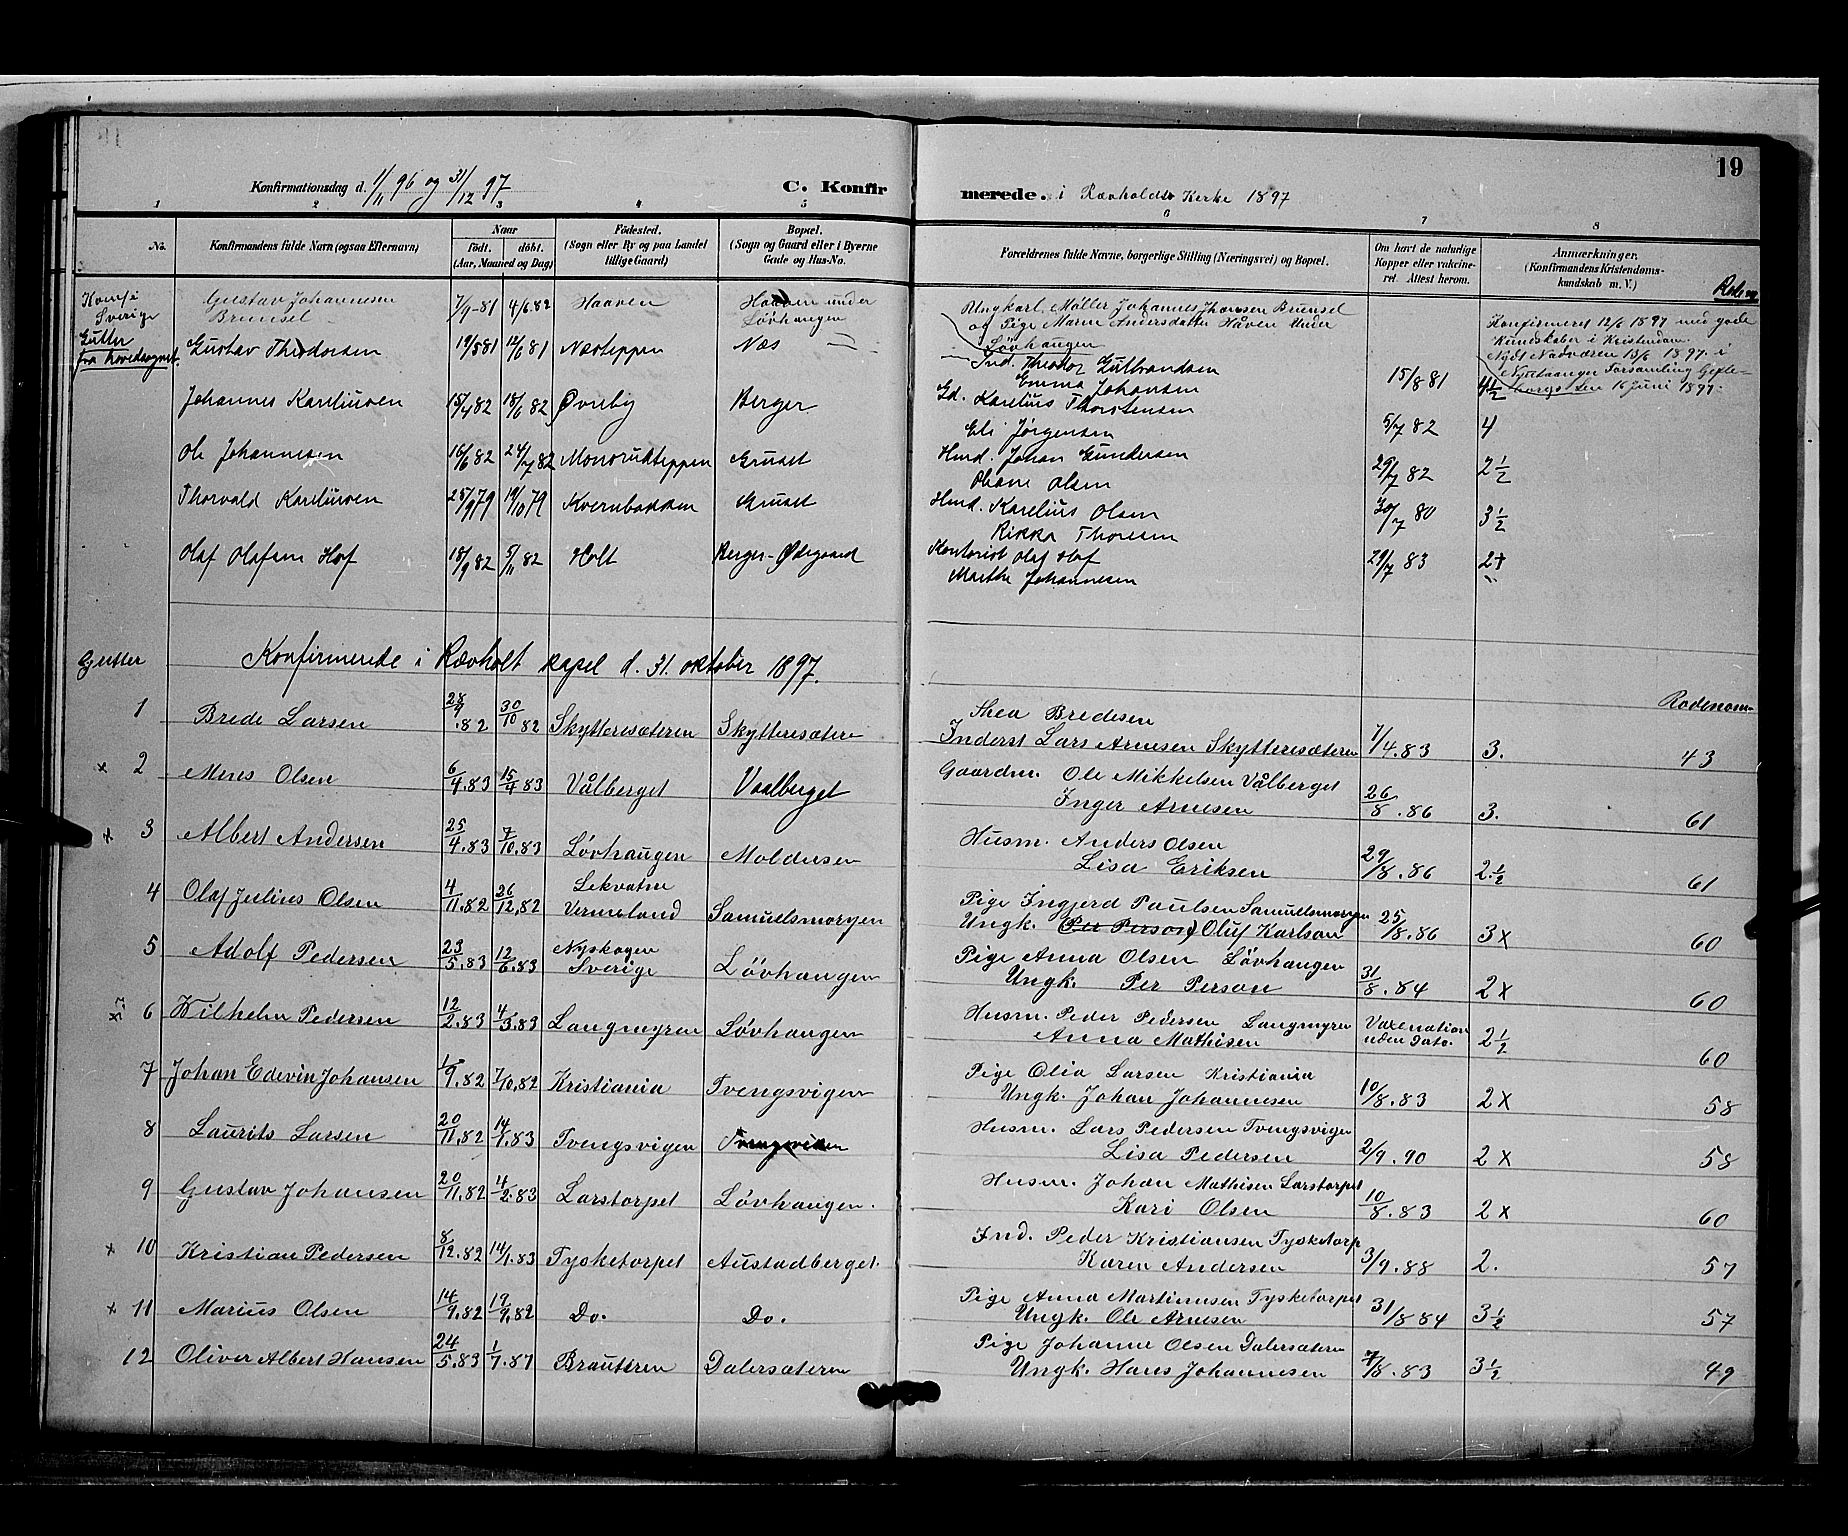 19
Konfirmationsdag d. 1/11 96 og 31/12 97
C. Konfirmerede. i Rævholdts Kerke 1897
1 2 3 4 5 6 7 8
No.
Konfirmandens fulde Navn (ogsaa Efternavn)
Naar
født. døbt.
(Aar, Maaned og Dag)
Fødested.
(Sogn eller By og paa Landet
tillige Gaard)
Bopæl.
(Sogn og Gaard eller i Byerne
Gade og Hus-No.
Forældrenes fulde Navne, borgerlige Stilling (Næringsvei) og Bopæl.
Om havt de naturlige
Kopper eller vakcine-
ret. Attest herom.
Anmærkninger.
(Konfirmandens Kristendoms-
kundskab m. V.)
Konf. i
Sverige
Gustav Johannesen
Brunsel
7/9-81 4/6 82 Haaven Haaven under
Løvhaugen
Ungkarl. Møller Johannes Jhansen Brunsel
og Pige Marie Andersdatter Håven Under
Løvhaugen
Konfirmeret 12/6 1897 med gode
Kundskaber i Kristendom.
Nydt Nadværen 13/6 1897. i
Forsamling
den 16 Juni 1897.
Gutter
fra hovedsognet.
Gustav Theodorsen 19/5 81 12/6 81 Næsteppen Næs
Ind. Theodor Gulbrandsen
Emma Johansen 15/8 81 4 1/2
Johannes Kareliusen 15/4 82 18/6 82 Øvreby Berger
Gd. Karelius Thorstensen
Eli Jørgensen 5/7 82 4
Ole Johannesen 16/6 82 24/7 82 Monsrudteppen Gruset
Hmd. Johan Gundersen
Oliane Olsen 29/7 82 2 1/2
Thorvald Kareliusen 25/9 79 19/10 79 Kvernbakken Gruset
Hmd. Karelius Olsen
Rikka Thoresen 30/7 80 3 1/2
Olaf Olafsen Hof 18/9 82 5/11 82 Holt Berger-Ødegaard
Kontorist Olaf Hof
Marthe Johannesen 29/7 83 2+
Gutter Konfirmerede i Rævholt kapel d. 31. oktober 1897.
Rodenom-
1 Brede Larsen 28/9 .82 30/10 82 Skytteresæteren Skytteresætere
Thea Bredesen
Inderst Lars Arnesen Skytteresæteren 1/4.83 3. 43
x 2 Mens Olsen 6/4.83 15/4 83 Vålberget Vaalberget
Gaardm. Ole Mikkelsen Vålberget
Inger Arnesen 26/8 .86 3. 61
x 3 Albert Andersen 25/4.83 7/10.83 Løvhaugen Moldusen
Husm. Anders Olsen
Lisa Eriksen 29/8.86 2.1/2 61
4 Olaf Julius Olsen 4/11.82 26/12.82 Lekvatne
Vermeland Samuelsmoryen
Pige Ingjerd Paulsen Samuelsmoryen
Ungk. (Per Person) Oluf Karlson 25/8.86 3x 60
5 Adolf Pedersen 23/5.83 12/6.83 Nyskogen
Sverige Løvhangen
Pige Anna Olsen Løvhangen
Ungk. Per Person 31/8.84 2x 60
6 Wilhelm Pedersen 12/2.83 4/3.83 Langmyren Løvhangen
Husm. Peder Pedersen Langmyren
Anna Mathisen Vaxenation
uden Dato. 2 1/2 60
7 Johan Edevin Johansen 1/9.82 7/10.82 Kristiania Tvengsvigen
Pige Olia Larsen Kristiania
Ungk. Johan Johannesen 10/8.83 2x 58
8 Laurits Larsen 20/11.82 14/1.83 Tvengsvigen Tvengsviken
Husm. Lars Pedersen Tvengsvigen
Lisa Pedersen 2/9.90 2x 58
9 Gustav Johansen 20/11.82 4/2.83 Larstorpet Løvhangen.
Husm. Johan Mathisen Larstorpet
Kari Olsen 10/8.83 2x 60
x 10 Kristian Pedersen 8/12.82 14/1.83 Tysketorpet Austadberget.
Ind. Peder Kristiansen Tysketorp
Karen Andersen 3/9.88 2. 57
x 11 Marius Olsen 14/9.82 19/9.82 Do. Do.
Pige Anna Martinusen Tysketorpet
Ungk. Ole Arnesen 31/8 84 3 1/2 57
12 Oliver Albert Hansen 24/5.83 1/7.87 Brauteren Dalersæteren
Pige Johanne Olsen Dalersæteren
Ungk. Hans Johannesen 7/8.83 3 1/2 49